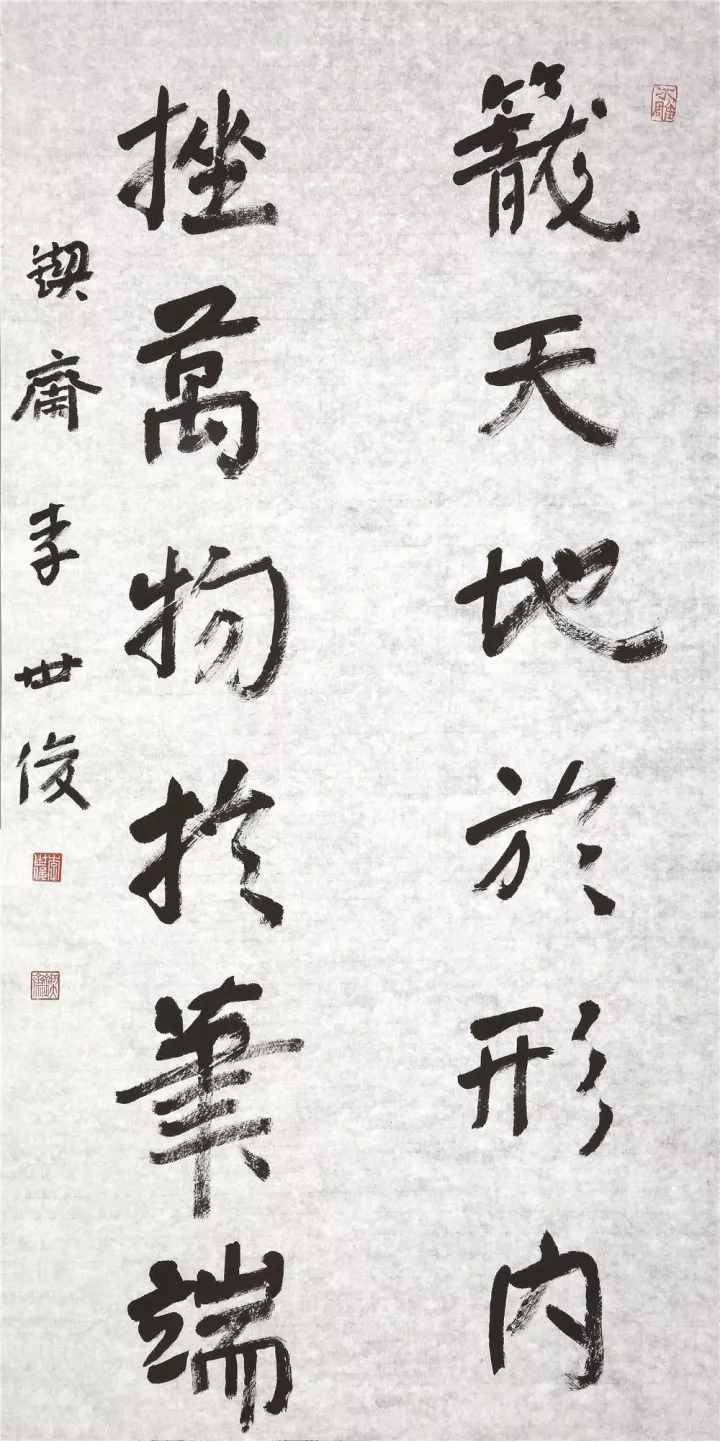 籠天地於形內
挫萬物於筆端
鍥齋李世俊